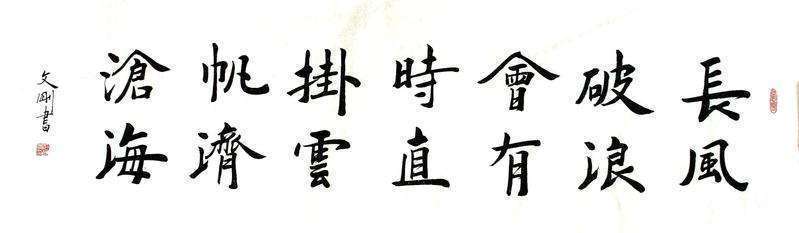 長風
破浪
會有
時直
掛雲
帆濟
滄海
文剛書